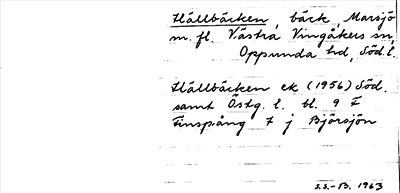 Hällbäcken, bäck, Marsjö
m. fl. Västra Vingåkers sn,
Oppunda hd, Söd. l.
Hällbäcken ek (1956) Söd.
samt Östg. l. bl. 9 F
Finspång 7 j Björsjön
S.S.-B. 1963